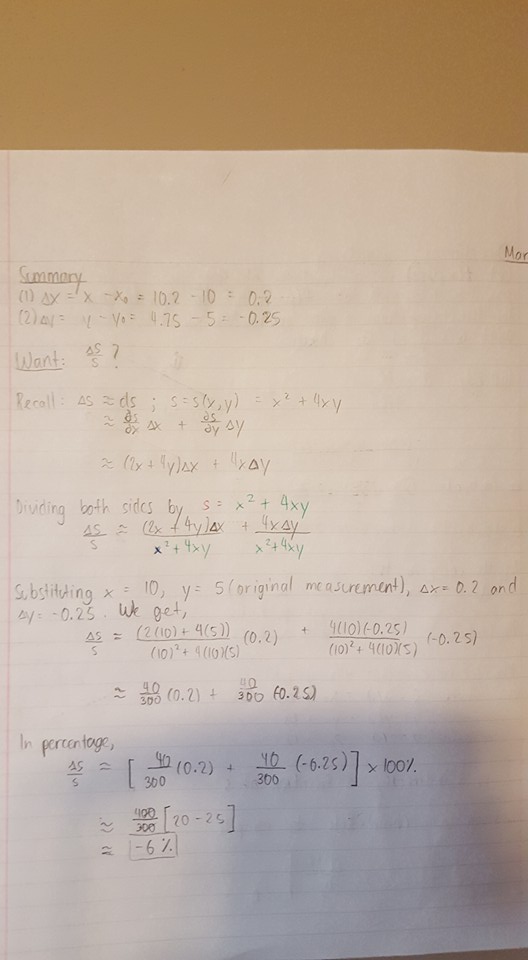 Mar
Summary
(1) Δx = x - x₀ = 10.2 - 10 = 0.2
(2) Δy = y - y₀ = 4.75 - 5 = -0.25
Want: ΔS/S ?
Recall: ΔS ≈ dS ; S = S(x,y) = x² + 4xy
≈ ∂S/∂x Δx + ∂S/∂y Δy
≈ (2x + 4y)Δx + 4xΔy
Dividing both sides by S = x² + 4xy
ΔS/S ≈ (2x + 4y)Δx / x² + 4xy + 4xΔy / x² + 4xy
Substituting x = 10, y = 5 (original measurement), Δx = 0.2 and
Δy = -0.25. We get,
ΔS/S ≈ (2(10) + 4(5)) / (10)² + 4(10)(5) (0.2) + 4(10)(-0.25) / (10)² + 4(10)(5) (-0.25)
≈ 40/300 (0.2) + 40/300 (-0.25)
In percentage,
ΔS/S ≈ [ 40/300 (0.2) + 40/300 (-0.25) ] × 100%
≈ /300 [20 - 25]
≈ -6 %